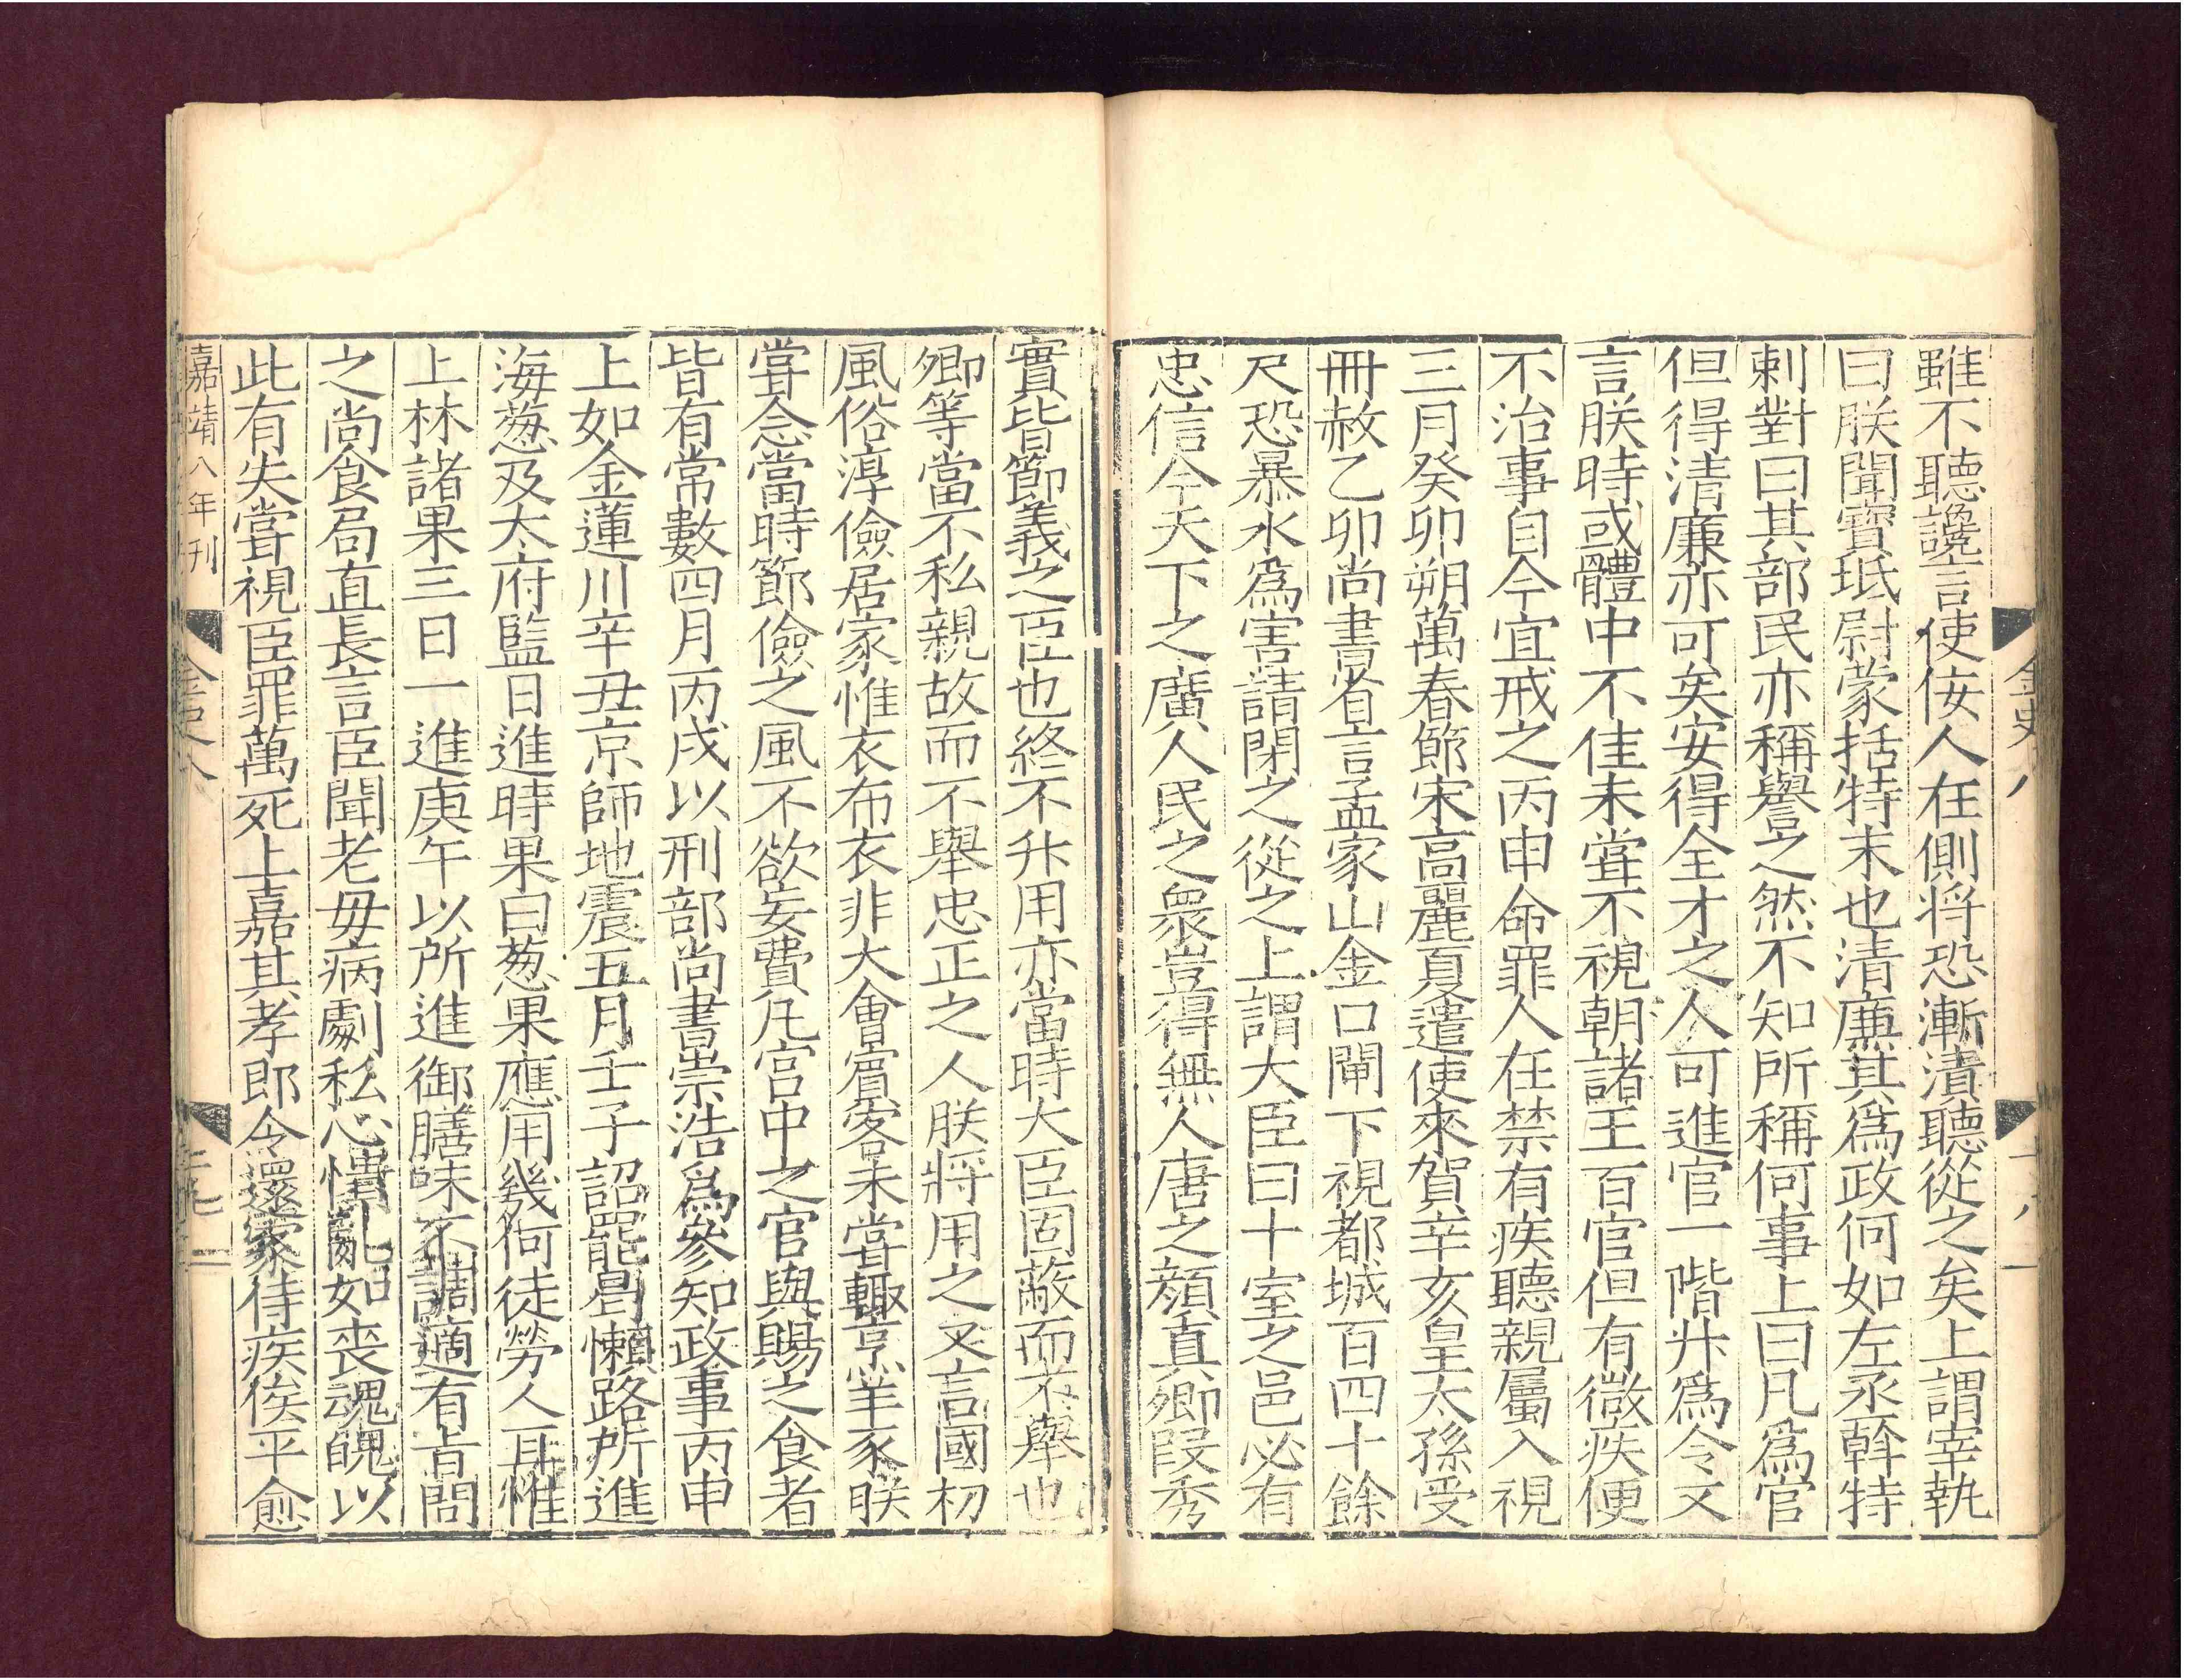 雖不聽讒言使佞人在側將恐漸漬聽從之矣上謂宰執
曰朕聞寶坻尉蒙括特末也清廉其爲政何如左丞斡特
剌對曰其部民亦稱譽之然不知所稱何事上曰凡爲官
但得清廉亦可矣安得全才之人可進官一階升爲令文
言朕時或體中不佳未嘗不視朝諸王百官但有微疾便
不治事自今宜戒之丙申命罪人在禁有疾聽親屬入視
三月癸卯朔萬春節宋高麗夏遣使來賀辛亥皇太孫受
冊赦乙卯尚書省言孟家山金口閘下視都城百四十餘
尺恐暴水爲害請閉之從之上謂大臣曰十室之邑必有
忠信今天下之廣人民之衆豈得無人唐之顏真卿段秀
實皆節義之臣也終不升用亦當時大臣固蔽而不舉也
卿等當不私親故而不舉忠正之人朕將用之又言國初
風俗淳儉居家惟衣布衣非大會賓客未嘗輒烹羊豕朕
嘗念當時節儉之風不欲妄費凡宮中之官與賜之食者
皆有常數四月丙戌以刑部尚書崇浩爲參知政事丙申
上如金蓮川辛丑京師地震五月壬子詔罷曷懶路所進
海葱及太府監日進時果曰葱果應用幾何徒勞人耳惟
上林諸果三日一進庚午以所進御膳味不調適有旨問
之尚食局直長言臣聞老母病劇私心憒亂如喪魂魄以
此有失嘗視臣罪萬死上嘉其孝即令還家待疾俟平愈
嘉靖八年刊
金史八